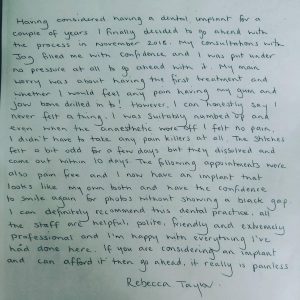 Having considered having a dental implant for a
couple of years I finally decided to go ahead with
the process in November 2018. My consultations with
Jag filled me with confidence and I was put under
no pressure at all to go ahead with it. My main
worry was about having the first treatment and
whether I would feel any pain having my gum and
jaw bone drilled in to! However, I can honestly say I
never felt a thing. I was suitably numbed up and
even when the anaesthetic wore off I felt no pain.
I didn't have to take any pain killers at all. The stiches
felt a bit odd for a few days but they dissolved and
came out within 10 days. The following appointments were
also pain free and I now have an implant that
looks like my own tooth and have the confidence
to smile again for photos without showing a black gap.
I can definitely recommend this dental practice, all
the staff are helpful, polite, friendly and extremely
professional and I'm happy with everything I've
had done here. If you are considering an implant
and can afford it then go ahead, it really is painless
Rebecca Taylor